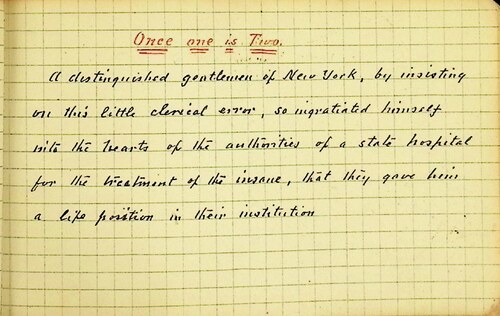 Once one is Two.
A distinguished gentlemen of New York, by insisting
on this little clerical error, so ingratiated himself
into the hearts of the authorities of a state hospital
for the treatment of the insane, that they gave him
a life position in their institution